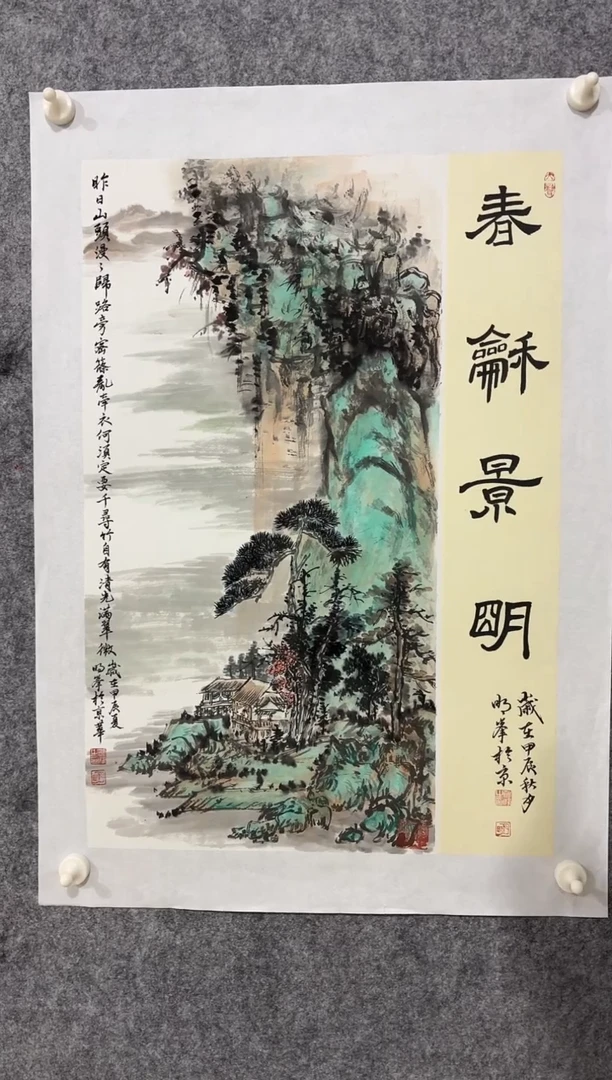 春龢景明
歲在甲辰秋月
明举於京
昨日山頭漫々歸路旁密篠亂牽衣何須定要千尋竹自有清光滿翠微
歲在甲辰夏
明举於京華